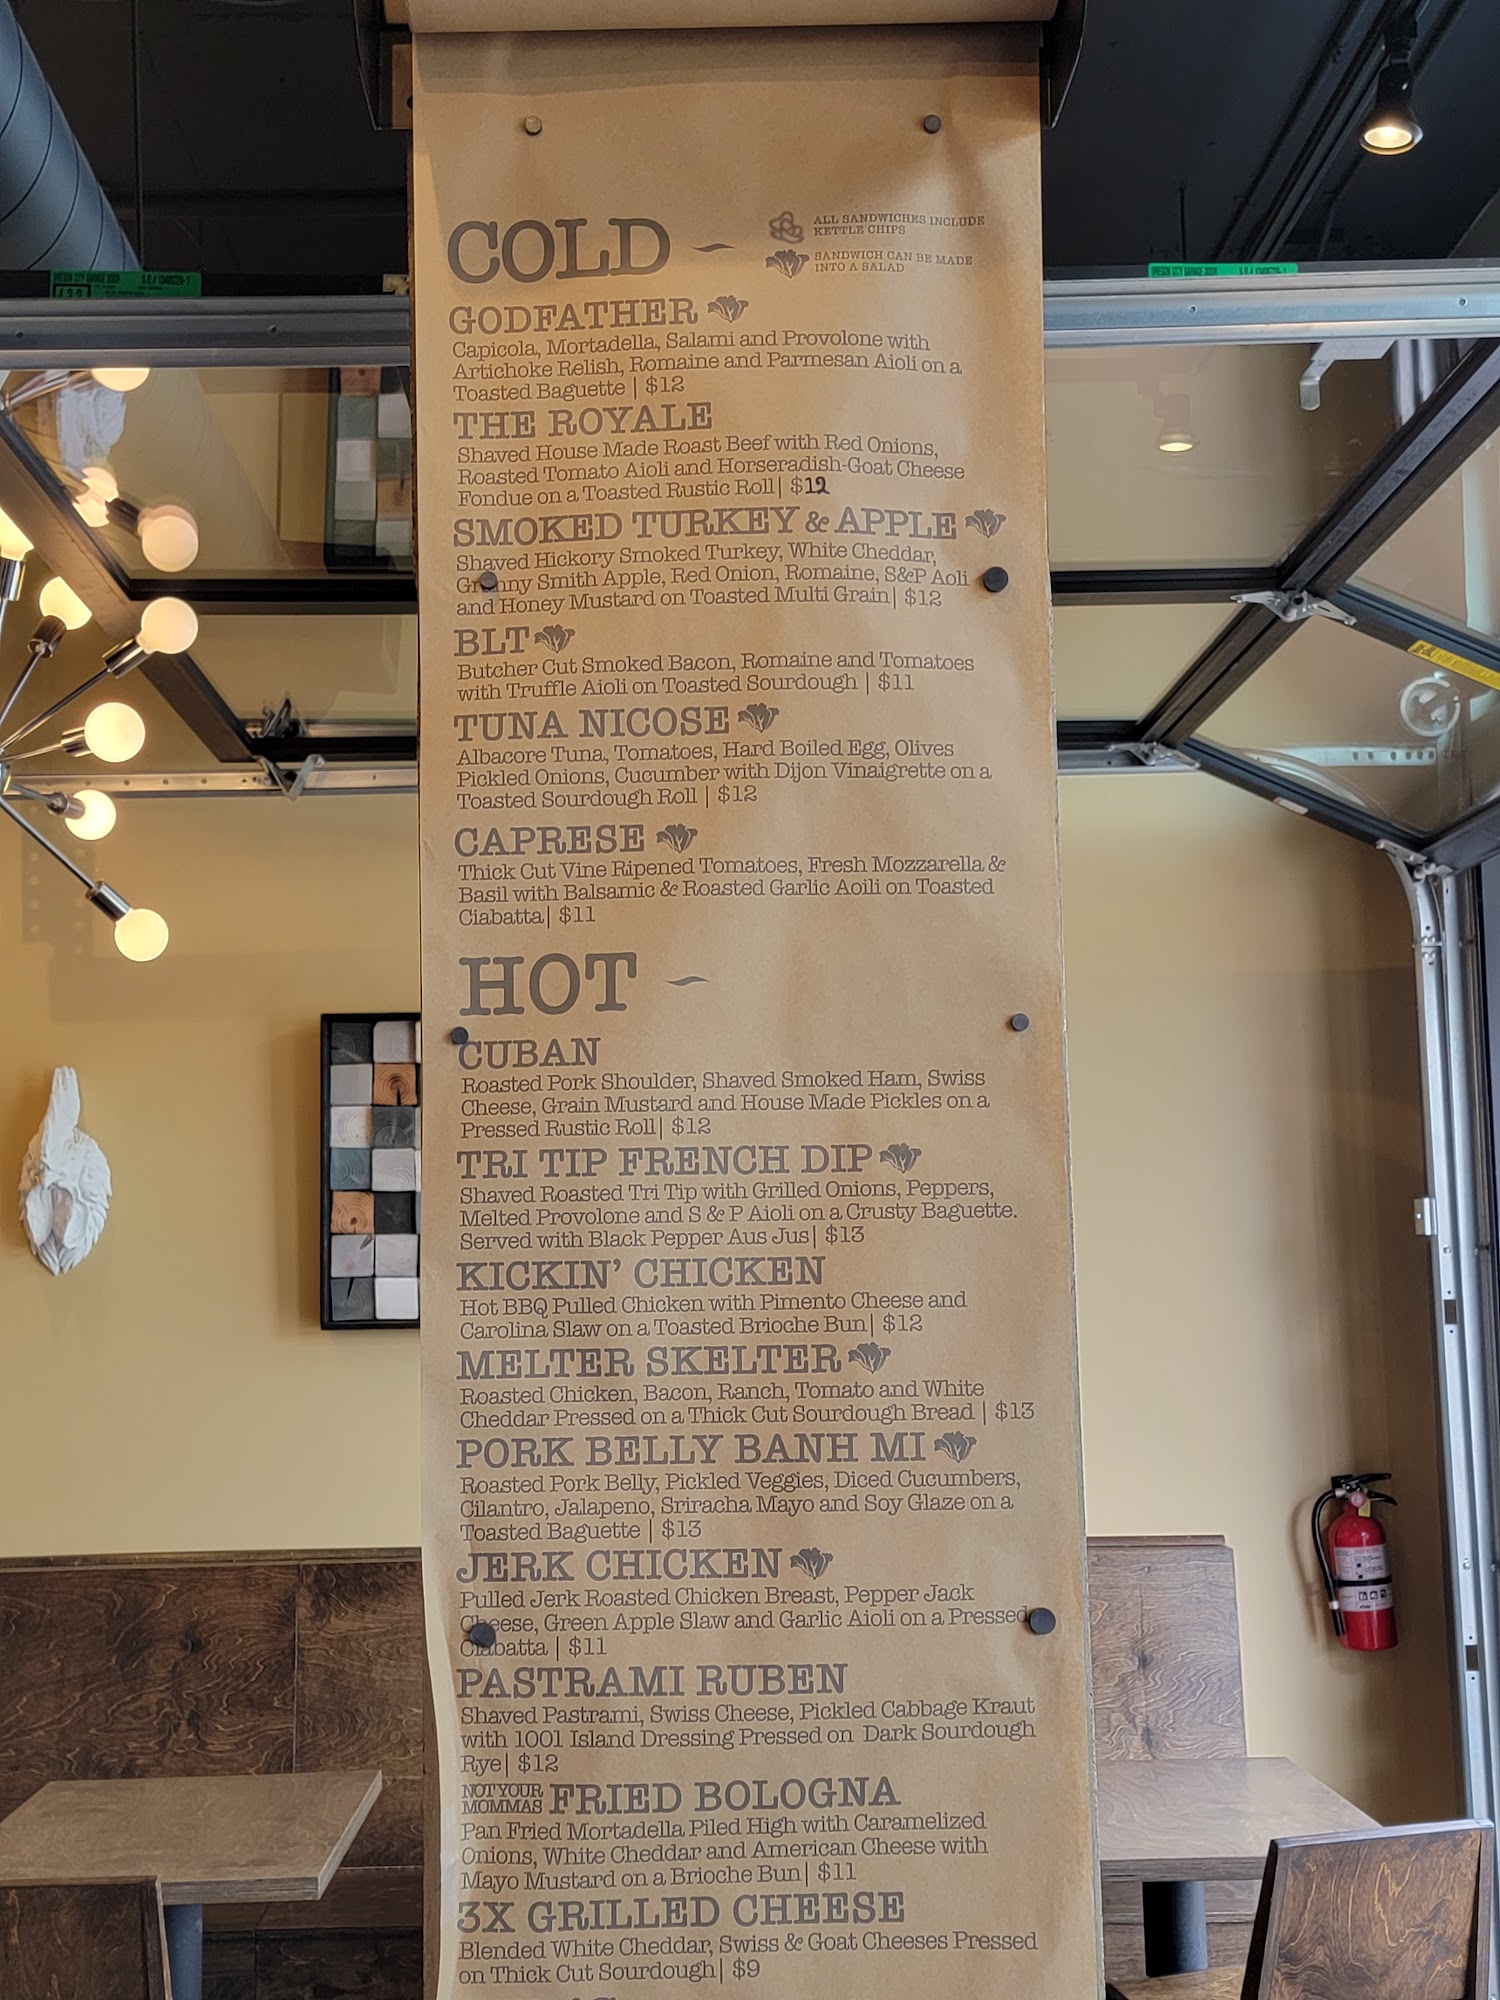 COLD ~
ALL SANDWICHES INCLUDE
KETTLE CHIPS
SANDWICH CAN BE MADE
INTO A SALAD
GODFATHER
Capicola, Mortadella, Salami and Provolone with
Artichoke Relish, Romaine and Parmesan Aioli on a
Toasted Baguette | $12
THE ROYALE
Shaved House Made Roast Beef with Red Onions,
Roasted Tomato Aioli and Horseradish-Goat Cheese
Fondue on a Toasted Rustic Roll| $12
SMOKED TURKEY & APPLE
Shaved Hickory Smoked Turkey, White Cheddar,
Granny Smith Apple, Red Onion, Romaine, S&P Aoli
and Honey Mustard on Toasted Multi Grain| $12
BLT
Butcher Cut Smoked Bacon, Romaine and Tomatoes
with Truffle Aioli on Toasted Sourdough | $11
TUNA NICOSE
Albacore Tuna, Tomatoes, Hard Boiled Egg, Olives
Pickled Onions, Cucumber with Dijon Vinaigrette on a
Toasted Sourdough Roll | $12
CAPRESE
Thick Cut Vine Ripened Tomatoes, Fresh Mozzarella &
Basil with Balsamic & Roasted Garlic Aoili on Toasted
Ciabatta| $11
HOT ~
CUBAN
Roasted Pork Shoulder, Shaved Smoked Ham, Swiss
Cheese, Grain Mustard and House Made Pickles on a
Pressed Rustic Roll| $12
TRI TIP FRENCH DIP
Shaved Roasted Tri Tip with Grilled Onions, Peppers,
Melted Provolone and S & P Aioli on a Crusty Baguette.
Served with Black Pepper Aus Jus| $13
KICKIN' CHICKEN
Hot BBQ Pulled Chicken with Pimento Cheese and
Carolina Slaw on a Toasted Brioche Bun| $12
MELTER SKELTER
Roasted Chicken, Bacon, Ranch, Tomato and White
Cheddar Pressed on a Thick Cut Sourdough Bread | $13
PORK BELLY BANH MI
Roasted Pork Belly, Pickled Veggies, Diced Cucumbers,
Cilantro, Jalapeno, Sriracha Mayo and Soy Glaze on a
Toasted Baguette | $13
JERK CHICKEN
Pulled Jerk Roasted Chicken Breast, Pepper Jack
Cheese, Green Apple Slaw and Garlic Aioli on a Pressed
Ciabatta | $11
PASTRAMI RUBEN
Shaved Pastrami, Swiss Cheese, Pickled Cabbage Kraut
with 1001 Island Dressing Pressed on Dark Sourdough
Rye| $12
NOT YOUR
MOMMAS FRIED BOLOGNA
Pan Fried Mortadella Piled High with Caramelized
Onions, White Cheddar and American Cheese with
Mayo Mustard on a Brioche Bun| $11
3X GRILLED CHEESE
Blended White Cheddar, Swiss & Goat Cheeses Pressed
on Thick Cut Sourdough| $9
OREGON CITY GARAGE DOOR
OREGON CITY GARAGE DOOR